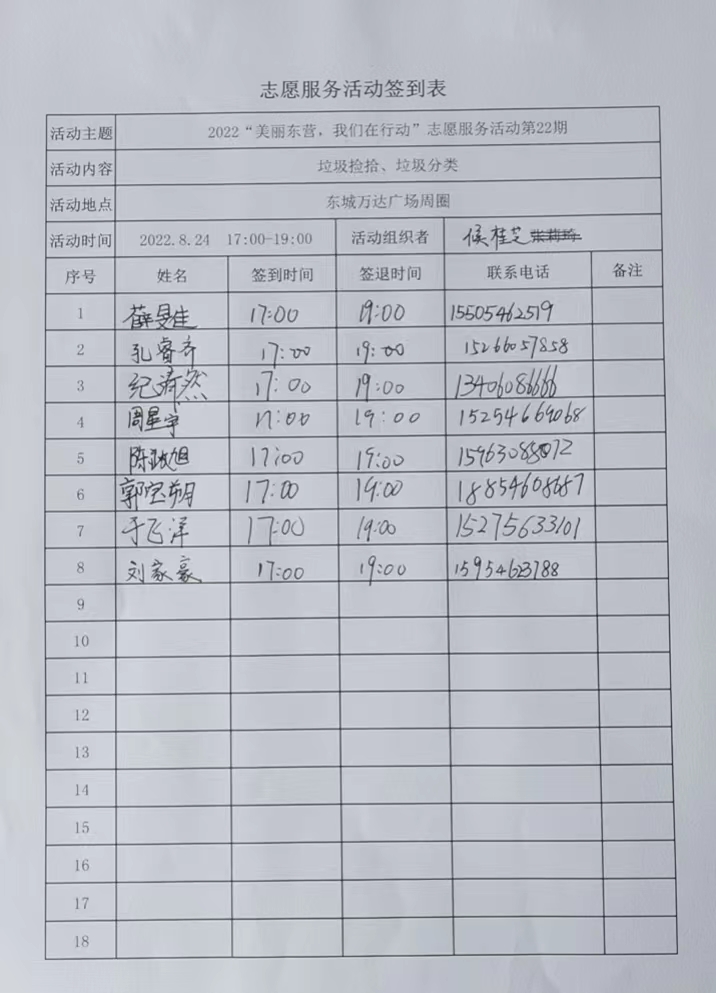 志愿服务活动签到表
活动主题 2022“美丽东营，我们在行动”志愿服务活动第22期
活动内容 垃圾捡拾、垃圾分类
活动地点 东城万达广场周圈
活动时间 2022.8.24 17:00-19:00 活动组织者 侯桂芝
序号 姓名 签到时间 签退时间 联系电话 备注
1 薛旻佳 17:00 19:00 15505462519
2 孔睿齐 17:00 19:00 15266057858
3 纪 然 17:00 19:00 13406086666
4 周星宇 17:00 19:00 15254669068
5 陈政旭 17:00 19:00 15963088072
6 郭宝朔 17:00 19:00 18854608687
7 于飞洋 17:00 19:00 15275633101
8 刘家豪 17:00 19:00 15954623788
9
10
11
12
13
14
15
16
17
18